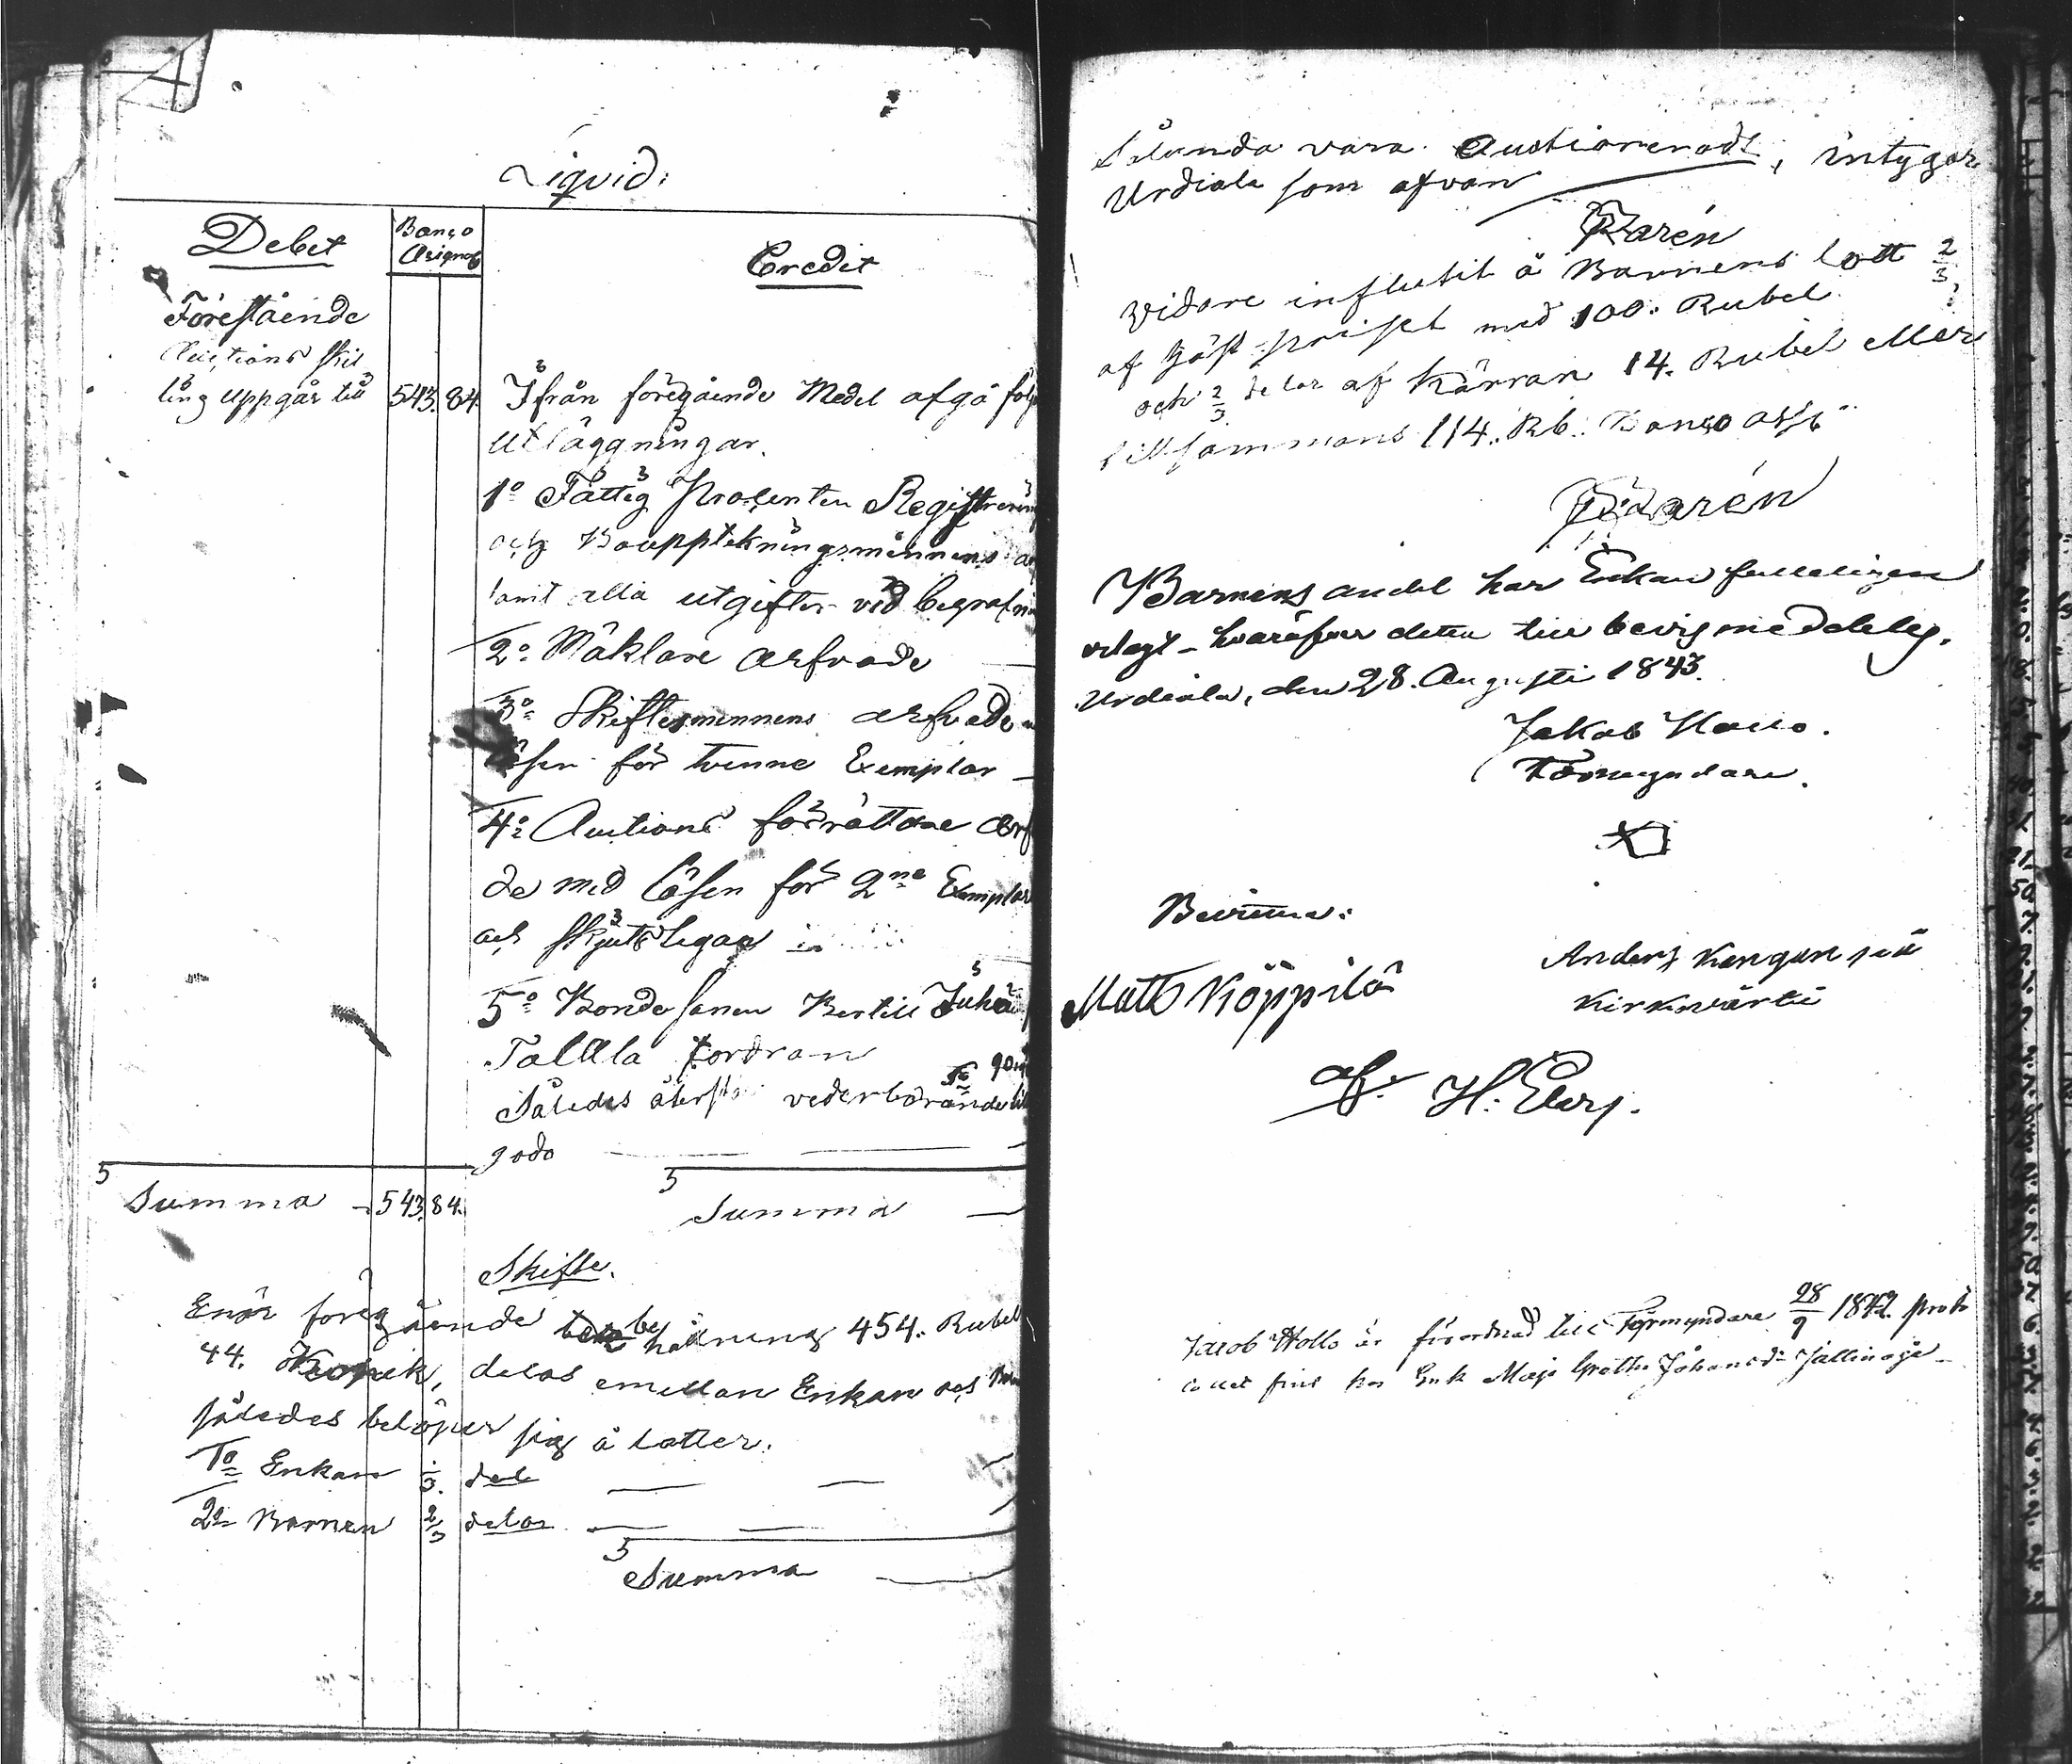 Liqvid:
Debet
Banco
Assignat
Credit
Förestående
Auctions skil
ling uppgår till 543. 84.
Ifrån föregående Medel afgå följ
utläggningar.
1o Fattig Procenten Registrering
och Bouppteknings männens ar
samt alla utgifter vid begrafni
2o Mäklare arfvode
3o Skiftesmennens arfvode
lösen för tvenne Exemplar
4o Auctions förrättare arf
de med lösen för 2ne Exemplar
och skjuts legan
5o Bonde sonen Bertill Juha
Talala fordran
Således återstår vederbörande till
godo
Summa 543. 84.
Summa
Skifte.
Enär föregående behållning 454. Rubel
44. Kopek, delas emellan Enkan och Barn
således belöper sig å lotter.
1o Enkan 1/3. del
2o Barnen 2/3 delar
Summa
Sålunda vara Auctioneradt, intygar
Urdiala som ofvan
Barén
Vidare influtit å Barnens lott 2/3
af Häst priset med 100. Rubel
och 2/3 delar af Kärran 14. Rubel eller
tillsammans 114. Rb. Banco ass
Barén
Barnens andel har Enkan fullligen
utlagt - hvaröfver detta till bevis meddelas.
Urdiala, den 28. Augusti 1843.
Jakob Hollo.
Förmyndare.
Bevittna:
Matts Köppilä
Anders
Kirkwärti
af. H. Elers.
Jacob Hollo är förordnad till Förmyndare 28/9 1842. proto
collet fins hos Enk Maja Greta Johansdr